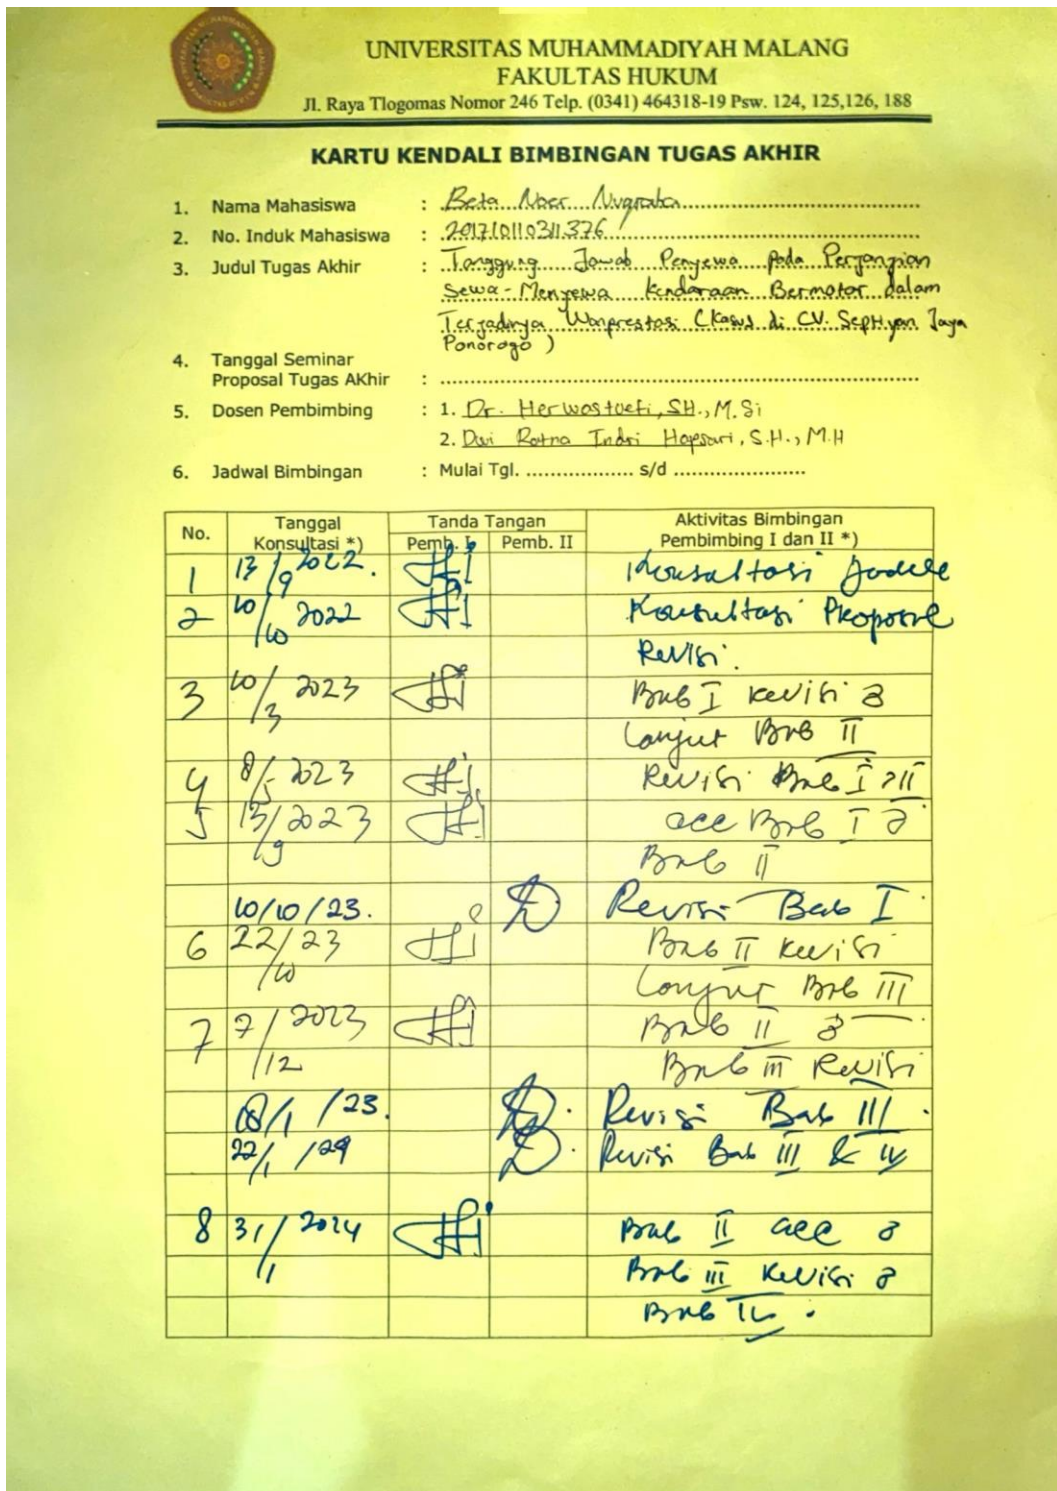 UNIVERSITAS MUHAMMADIYAH MALANG
FAKULTAS HUKUM
Jl. Raya Tlogomas Nomor 246 Telp. (0341) 464318-19 Psw. 124, 125,126, 188
KARTU KENDALI BIMBINGAN TUGAS AKHIR
1. Nama Mahasiswa : Beta Noer Nugraha
2. No. Induk Mahasiswa : 201710110311376
3. Judul Tugas Akhir : Tanggung Jawab Penyewa pada Perjanjian
Sewa-Menyewa Kendaraan Bermotor dalam
Terjadinya Wanprestasi (Kasus di CV. Septyan Jaya
Ponorogo)
4. Tanggal Seminar
Proposal Tugas AKhir : ....................
5. Dosen Pembimbing : 1. Dr. Herwastoeti, SH., M.Si
2. Dwi Ratna Indri Hapsari, S.H., M.H
6. Jadwal Bimbingan : Mulai Tgl. .................. s/d ......................
No. Tanggal Konsultasi *) Tanda Tangan Pemb. I Pemb. II Aktivitas Bimbingan Pembimbing I dan II *)
1 13/9 2022. Konsultasi Judul
2 10/10 2022 Konsultasi Proposal
Revisi.
3 10/3 2023 Bab I Revisi &
Lanjut Bab II
4 8/5 2023 Revisi Bab I & II
5 13/9 2023 acc Bab I &
Bab II
10/10/23. Revisi Bab I
6 22/10 23 Bab II Revisi
Lanjut Bab III
7 7/12 2023 Bab II &
Bab III Revisi
/1 /23. Revisi Bab III.
22/1 /24 Revisi Bab III & IV
8 31/1 2024 Bab II acc &
Bab III Revisi &
Bab IV.